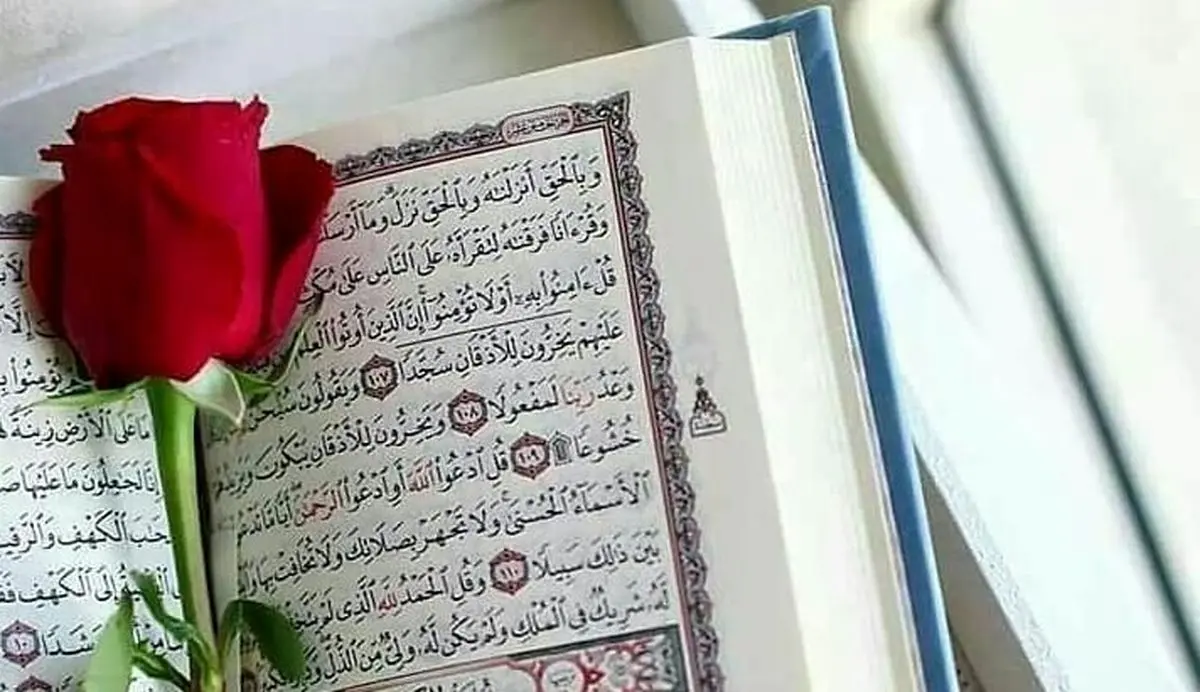 وَبِٱلْحَقِّ أَنزَلْنَٰهُ وَبِٱلْحَقِّ نَزَلَ ۗ وَمَآ أَرْسَلْ
وَقُرْءَانًا فَرَقْنَٰهُ لِتَقْرَأَهُۥ عَلَى ٱلنَّاسِ عَلَىٰ مُكْ
قُلْ ءَامِنُوا۟ بِهِۦٓ أَوْ لَا تُؤْمِنُوٓا۟ ۚ إِنَّ ٱلَّذِينَ أُوتُوا۟ ٱلْعِلْمَ
عَلَيْهِمْ يَخِرُّونَ لِلْأَذْقَانِ سُجَّدًا ١٠٧ وَيَقُولُونَ سُبْحَٰنَ
وَعْدُ رَبِّنَا لَمَفْعُولًا ١٠٨ وَيَخِرُّونَ لِلْأَذْقَانِ يَبْكُونَ وَيَزِيدُهُمْ
خُشُوعًا ۩ ١٠٩ قُلِ ٱدْعُوا۟ ٱللَّهَ أَوِ ٱدْعُوا۟ ٱلرَّحْمَٰنَ أَيًّا مَّا تَدْعُوا۟
ٱلْأَسْمَآءُ ٱلْحُسْنَىٰ ۚ وَلَا تَجْهَرْ بِصَلَاتِكَ وَلَا تُخَافِتْ بِهَا وَٱبْ
بَيْنَ ذَٰلِكَ سَبِيلًا ١١٠ وَقُلِ ٱلْحَمْدُ لِلَّهِ ٱلَّذِى لَمْ يَتَّخِذْ
لَّهُۥ شَرِيكٌ فِى ٱلْمُلْكِ وَلَمْ يَكُن لَّهُۥ وَلِىٌّ مِّنَ ٱلذُّلِّ وَكَبِّرْهُ
إِلَّا
يُؤْمِنُوا۟ بِ
مَا عَلَى ٱلْأَرْضِ زِينَةً لَّهَا
إِنَّا لَجَٰعِلُونَ مَا عَلَيْهَا صَ
ٱلْكَهْفِ وَٱلرَّقِيمِ
إِلَى ٱلْكَهْفِ فَقَ
رَشَدًا ١٠